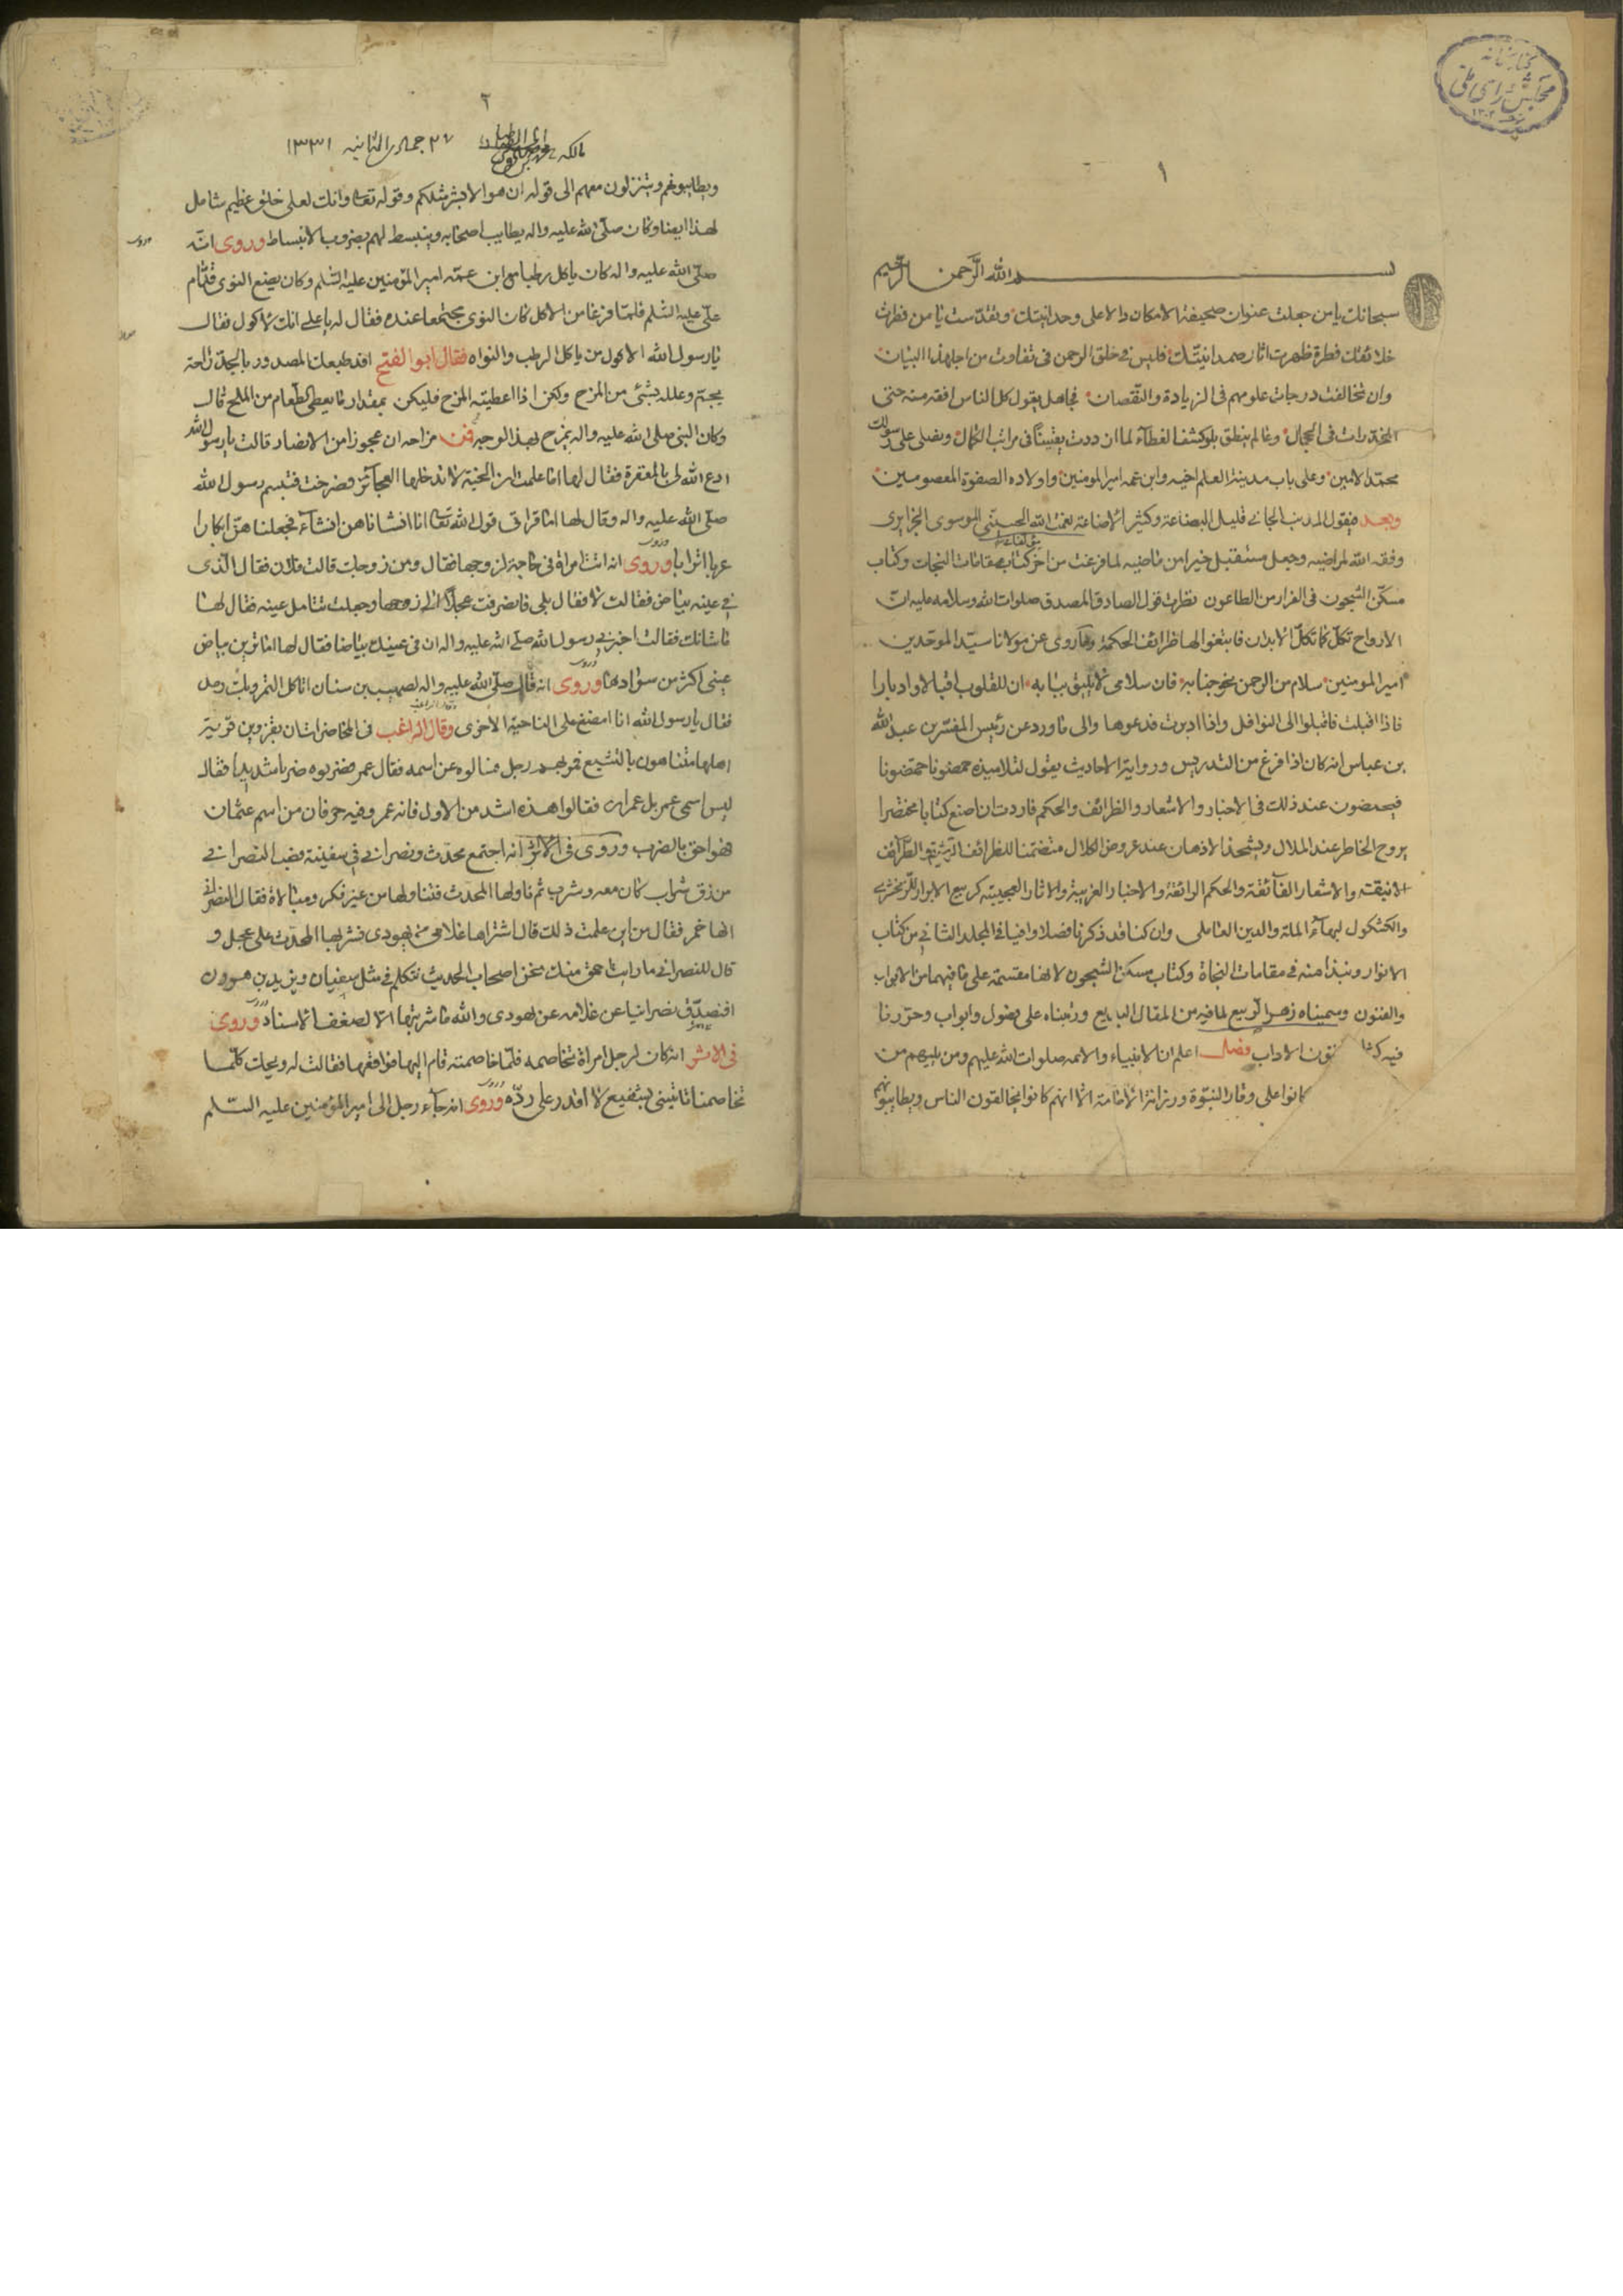 كتابخانه
مجلس شورای ملی
١
بسم الله الرحمن الرحيم
سبحانك يا من جعلت عنوان صحيفة الامكان دالا على وحدانيتك وتقدست يا من فطرت
خلائقك فطرة ظهرت اثار صمدانيتك فليس في خلق الرحمن في تفاوت من اجل هذا البيان
وان تخالفت درجات علومهم في الزيادة والنقصان فجاهل يقول كل الناس افقه منه حتى
المخدرات في الحجال وعالم ينطق بلو كشف الغطاء لما ازددت يقينا في مراتب الكمال ونصلى على رسولك
محمد الامين وعلى باب مدينة العلم اخيه وابن عمه امير المومنين واولاده الصفوة المعصومين
وبعد فيقول المذنب الجاني قليل البضاعة وكثير الاضاعة نعمت الله الحسيني الموسوى الجزايرى
وفقه الله لمراضيه وجعل مستقبله خيرا من ماضيه لما فرغت من اخر كتاب مقامات النجات وكتاب
مسكن الشجون في الفرار من الطاعون نظرت قول الصادق المصدق صلوات الله وسلامه عليه ان
الارواح تكل كما تكل الابدان فابتغوا لها ظرائف الحكمة وما روى عن مولانا سيد الموحدين
امير المومنين سلام من الرحمن نحو جنابه فان سلامى لا يليق ببابه ان للقلوب اقبالا وادبارا
فاذا اقبلت فاقبلوا الى النوافل واذا ادبرت فدعوها والى ما ورد عن رئيس المفسرين عبد الله
بن عباس انه كان اذا فرغ من التدريس ورواية الاحاديث يقول لتلاميذه حمضونا حمضونا
فيحمضون عند ذلك في الاخبار والاشعار والظرائف والحكم فاردت ان اصنع كتابا مختصرا
يروح الخاطر عند الملال ويشحذ الاذهان عند عروض الكلال متضمنا للظرائف الرشيقة والطرائف
الانيقة والاشعار الفائقة والحكم الرائقة والاخبار الغريبة والاثار العجيبة كربيع الابرار للزمخشرى
والكشكول لبهاء الملة والدين العاملى وان كنا قد ذكرنا فصلا وافيا في المجلد الثاني من كتاب
الانوار ونبذا منه في مقامات النجاة وكتاب مسكن الشجون لانها مقسمة على ما فيهما من الابواب
والفنون وسميناه زهر الربيع لما فيه من المقال البديع ورتبناه على فصول وابواب وحررنا
فيه فنون الاداب فصل اعلم ان الانبياء والائمه صلوات الله عليهم ومن يليهم من
كانوا على وقار النبوة ورزانة الامامة الا انهم كانوا يخالقون الناس ويطايبونهم
٢
مالكه
٢٧ جمادى الثانيه ١٣٣١
ويطايبونهم ويتنزلون معهم الى قوله ان هو الا بشر مثلكم وقوله تعالى وانك لعلى خلق عظيم شامل
لهذا ايضا وكان صلى الله عليه واله يطايب اصحابه وينبسط لهم بضروب الانبساط وروى انه
صلى الله عليه واله كان ياكل رطبا مع ابن عمه امير المؤمنين عليه السلم وكان يضع النوى قدام
على عليه السلم فلما فرغا من الاكل كان النوى مجتمعا عنده فقال له يا على انك لاكول فقال
يا رسول الله الاكول من ياكل الرطب والنواه فقال ابو الفتح افد طبعك المصدور بالجد راحة
يجم وعلله بشئ من المزح ولكن اذا اعطيته المزح فليكن بمقدار ما يعطى الطعام من الملح قال
وكان النبى صلى الله عليه واله يمزح بهذا الوجه فمن مزاحه ان عجوزا من الانصار قالت يا رسول الله
ادع الله لى بالمغفرة فقال لها اما علمت ان الجنة لا تدخلها العجائز فصرخت فتبسم رسول الله
صلى الله عليه واله وقال لها اما قرات قول الله تعالى انا انشاناهن انشاء فجعلناهن ابكارا
عربا اترابا وروى انه اتت امراة في حاجة لزوجها فقال ومن زوجك قالت فلان فقال الذى
في عينه بياض فقالت لا فقال بلى فانصرفت عجلا الى زوجها وجعلت تتامل عينه فقال لها
ما شانك فقالت اخبرني رسول الله صلى الله عليه واله ان في عينك بياضا فقال لها اما ترين بياض
عينى اكثر من سوادها وروى انه قال صلى الله عليه واله لصهيب بن سنان اتاكل التمر وبك رمد
فقال يا رسول الله انا امضغ على الناحية الاخرى وقال الراغب في المحاضرات ان بقزوين قرية
اهلها متناهون بالتشيع فمر بهم رجل فسالوه عن اسمه فقال عمر فضربوه ضربا شديدا فقال
ليس اسمى عمر بل عمران فقالوا هذه اشد من الاول فانه عمر وفيه حرفان من اسم عثمان
فهو احق بالضرب وروى في الاثر انه اجتمع محدث ونصراني في سفينة فصب النصراني
من زق شراب كان معه وشرب ثم ناولها المحدث فتناولها من غير فكر ومبالاة فقال النصراني
انها خمر فقال من اين علمت ذلك قال اشتراها غلامى من يهودى فشربها المحدث على عجل و
قال للنصراني ما رايت احمق منك نحن اصحاب الحديث نتكلم في مثل سفيان ويزيد بن هرون
افنصدق نصرانيا عن غلامه عن يهودى والله ما شربتها الا لضعف الاسناد وروى
في الاثر انه كان لرجل امراة تخاصمه فلما خاصمته قام اليها فواقعها فقالت له ويحك كلما
تخاصمنا تاتيني بشفيع لا اقدر على رده وروى انه جاء رجل الى امير المؤمنين عليه السلم